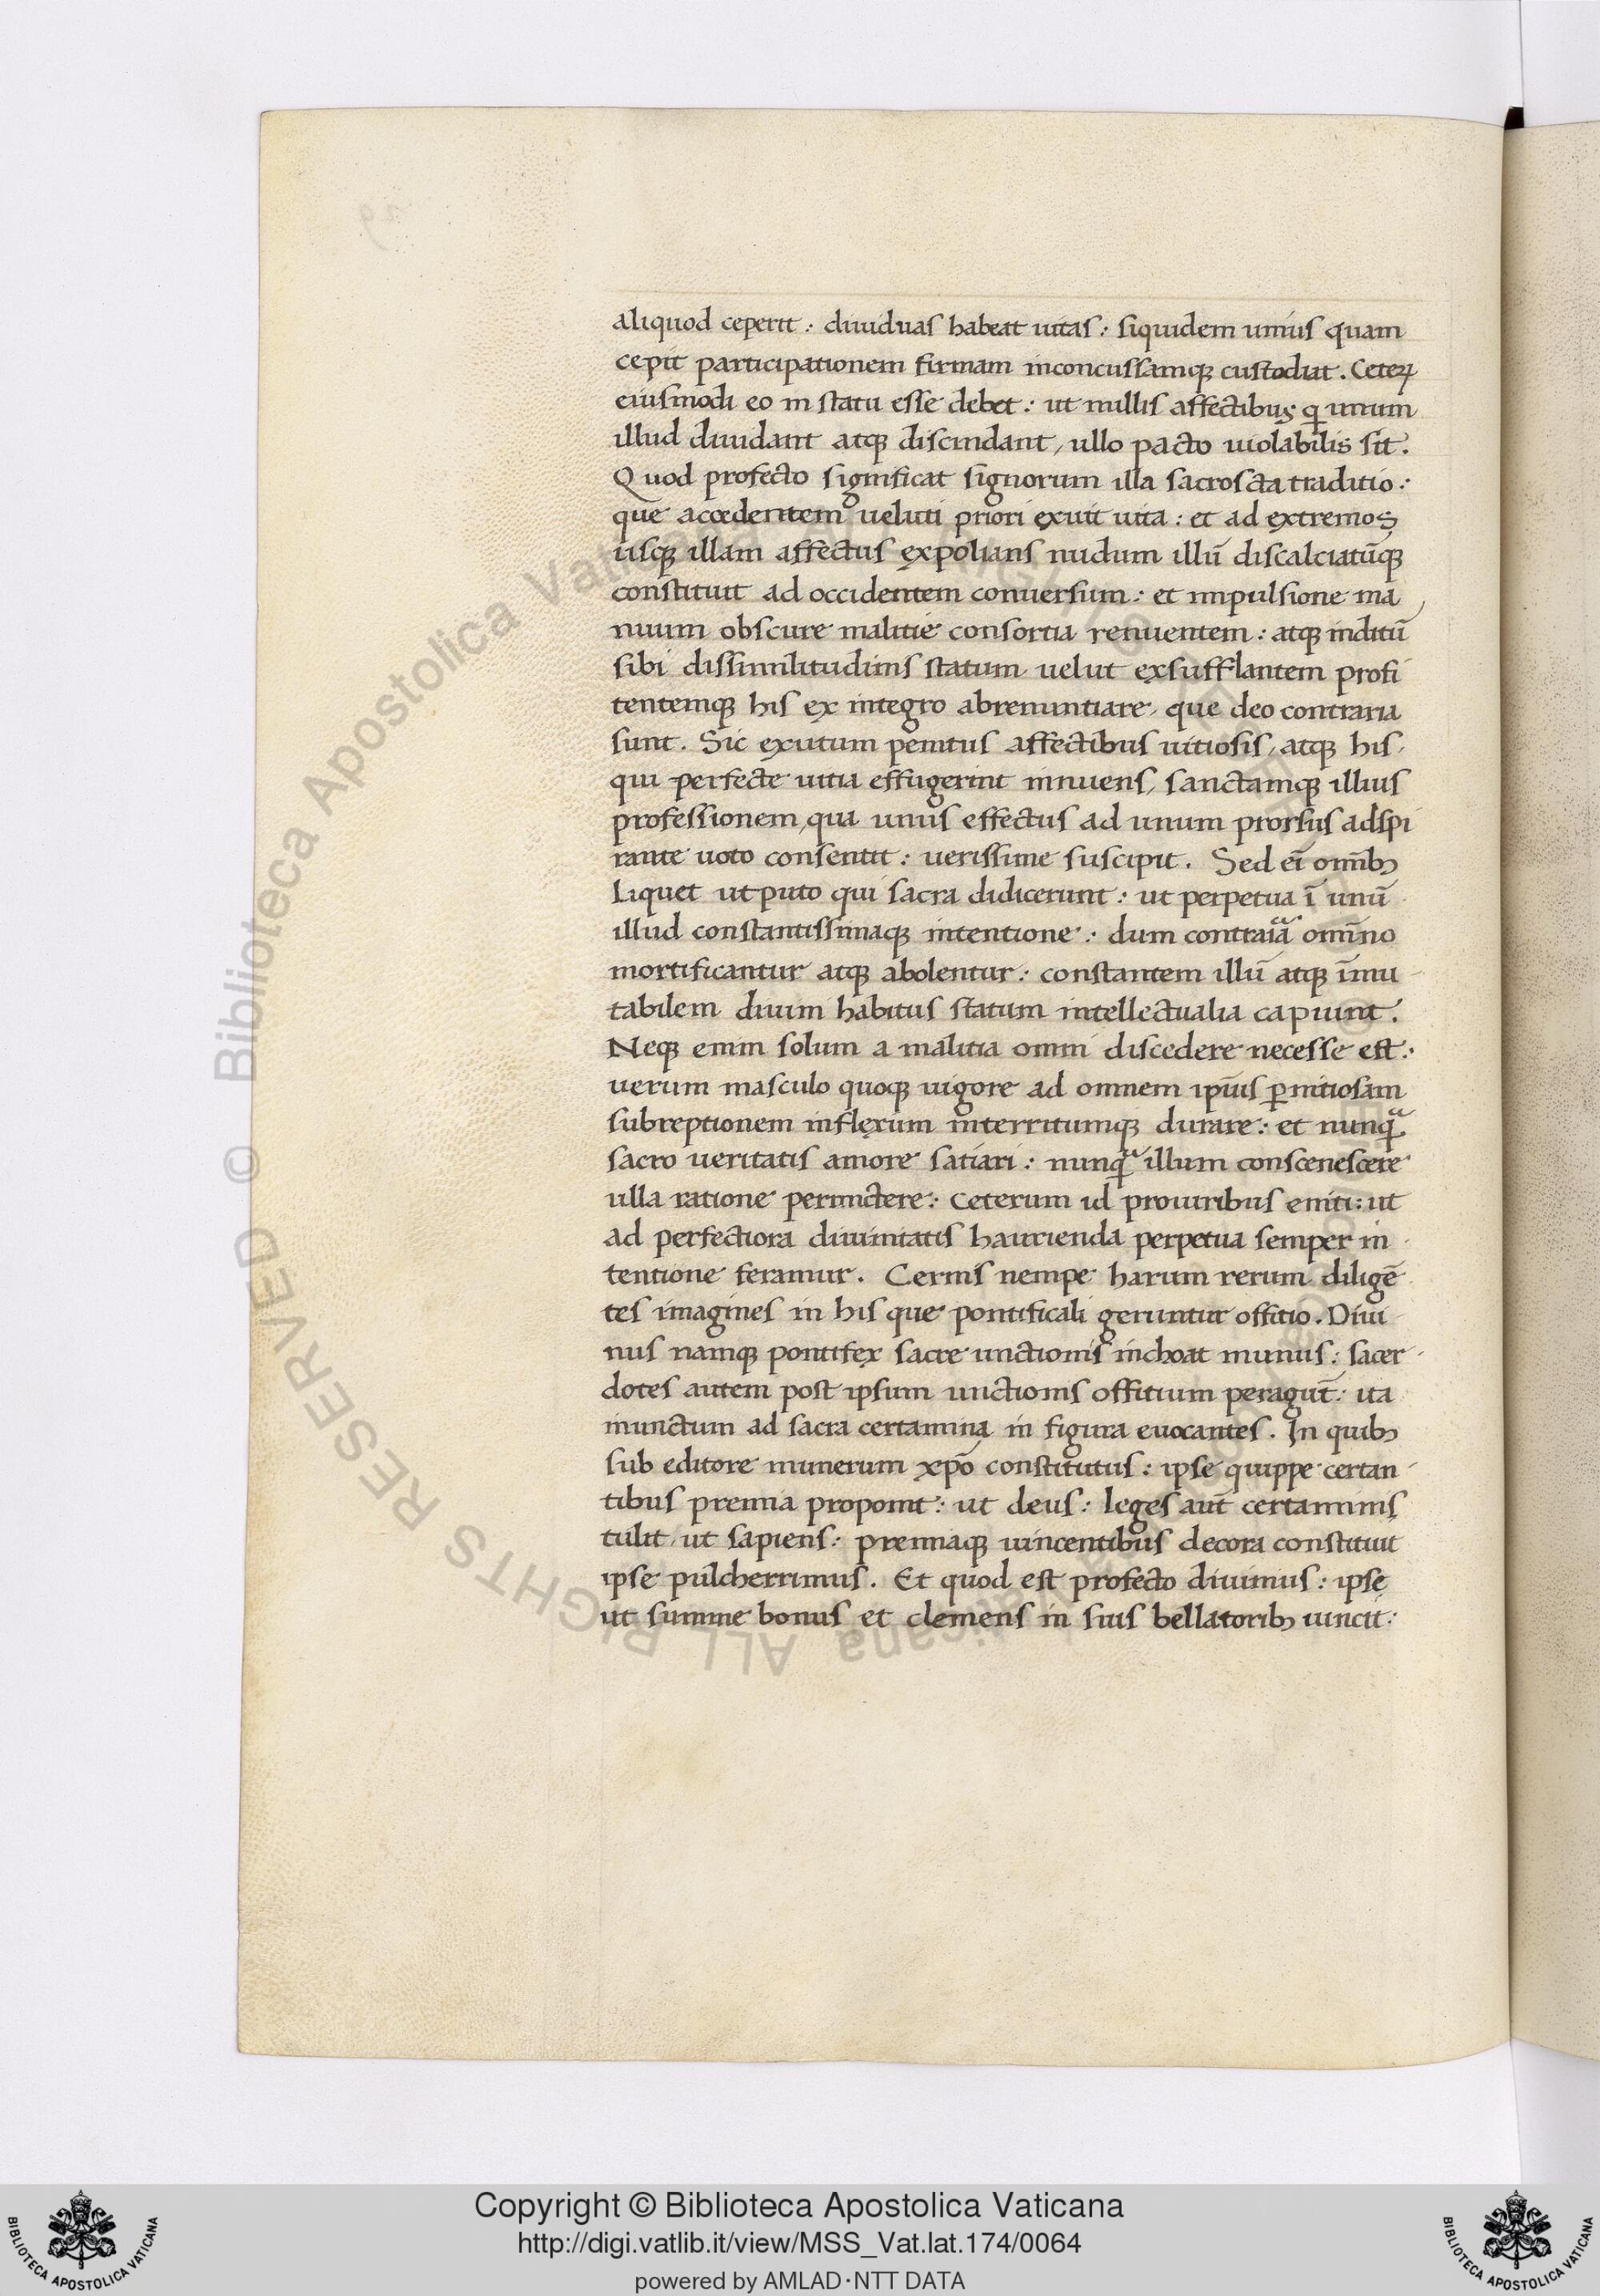 aliquod ceperit: diuiduas habeat uitas: siquidem unius quam
cepit participationem firmam inconcussamqꝫ custodiat. Ceteꝝ
eiusmodi eo in statu esse debet: ut nullis affectibus q̨ unum
illud diuidant atqꝫ discindant, ullo pacto uiolabilis sit.
Quod profecto significat signorum illa sacroscta traditio:
que accedentem ueluti priori exuit uita: et ad extremos
usqꝫ illam affectus expolians nudum illū discalciatūqꝫ
constituit ad occidentem conuersum: et impulsione ma
nuum obscure malitie consortia renuentem: atqꝫ inditū
sibi dissimilitudinis statum uelut exsufflantem profi
tentemqꝫ his ex integro abrenuntiare, que deo contraria
sunt. Sic exutum penitus affectibus uitiosis, atqꝫ his,
qui perfecte uitia effugerint innuens, sanctamqꝫ illius
professionem, qua unus effectus ad unum prorsus adspi
rante uoto consentit: uerissime suscipit. Sed eī omīb;
liquet ut puto qui sacra didicerunt: ut perpetua ī unū
illud constantissimaqꝫ intentione: dum contraiaͣ omīno
mortificantur atqꝫ abolentur: constantem illū atqꝫ īmu
tabilem diuini habitus statum intellectualia capiunt.
Neqꝫ enim solum a malitia omni discedere necesse est:
uerum masculo quoqꝫ uigore ad omnem ip̄ius ꝑnitiosam
subreptionem inflexum interritumqꝫ durare: et nunqͣ
sacro ueritatis amore satiari: nunqͣ illum conscenescere
ulla ratione permictere: Ceterum id prouiribus eniti: ut
ad perfectiora diuinitatis haurienda perpetua semper in
tentione feramur. Cernis nempe harum rerum diligē
tes imagines in his que pontificali geruntur offitio. Diui
nus namqꝫ pontifex sacre unctionis inchoat munus: sacer
dotes autem post ipsum unctionis offitium peragūt: ita
inunctum ad sacra certamina in figura euocantes. In quib;
sub editore munerum xp̄o constitutus: ipse quippe certan
tibus premia proponit: ut deus: leges aūt certaminis
tulit, ut sapiens: premiaqꝫ uincentibus decora constituit
ipse pulcherrimus. Et quod est profecto diuinius: ipse
ut summe bonus et clemens in suis bellatorib; uincit:
© Biblioteca Apostolica Vaticana ALL RIGHTS RESERVED
Copyright © Biblioteca Apostolica Vaticana
http://digi.vatlib.it/view/MSS_Vat.lat.174/0064
powered by AMLAD·NTT DATA
BIBLIOTECA APOSTOLICA VATICANA
BIBLIOTECA APOSTOLICA VATICANA